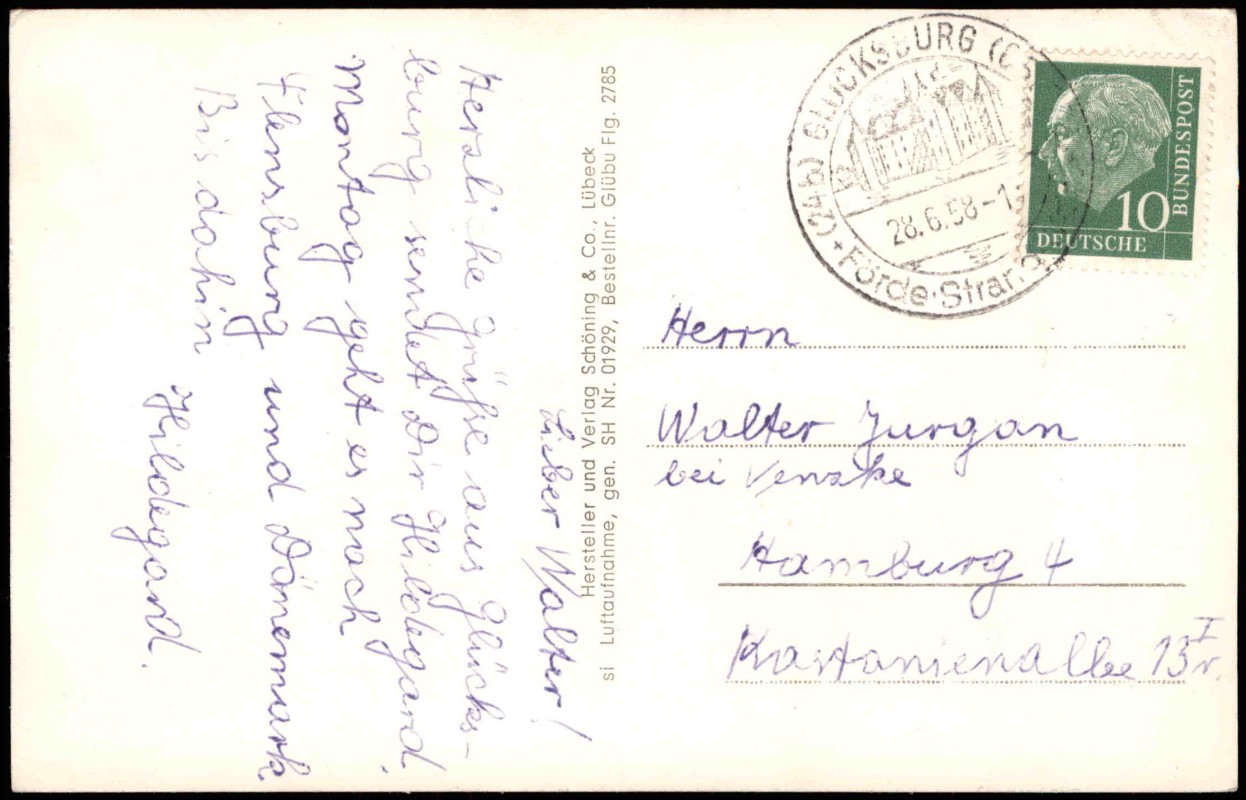 Lieber Walter!
Herzliche Grüße aus Glücks-
burg sendet Dir Hildegard.
Montag geht es nach
Flensburg und Dänemark.
Bis dahin
Hildegard.
Hersteller und Verlag Schöning & Co., Lübeck
si Luftaufnahme, gen. SH Nr. 01929, Bestellnr. Glübu Flg. 2785
(24b) GLÜCKSBURG
28.6.58-1
+ Förde-Strand
10
DEUTSCHE
BUNDESPOST
Herrn
Walter Jurgan
bei Venzke
Hamburg 4
Kastanienallee 13 I r.